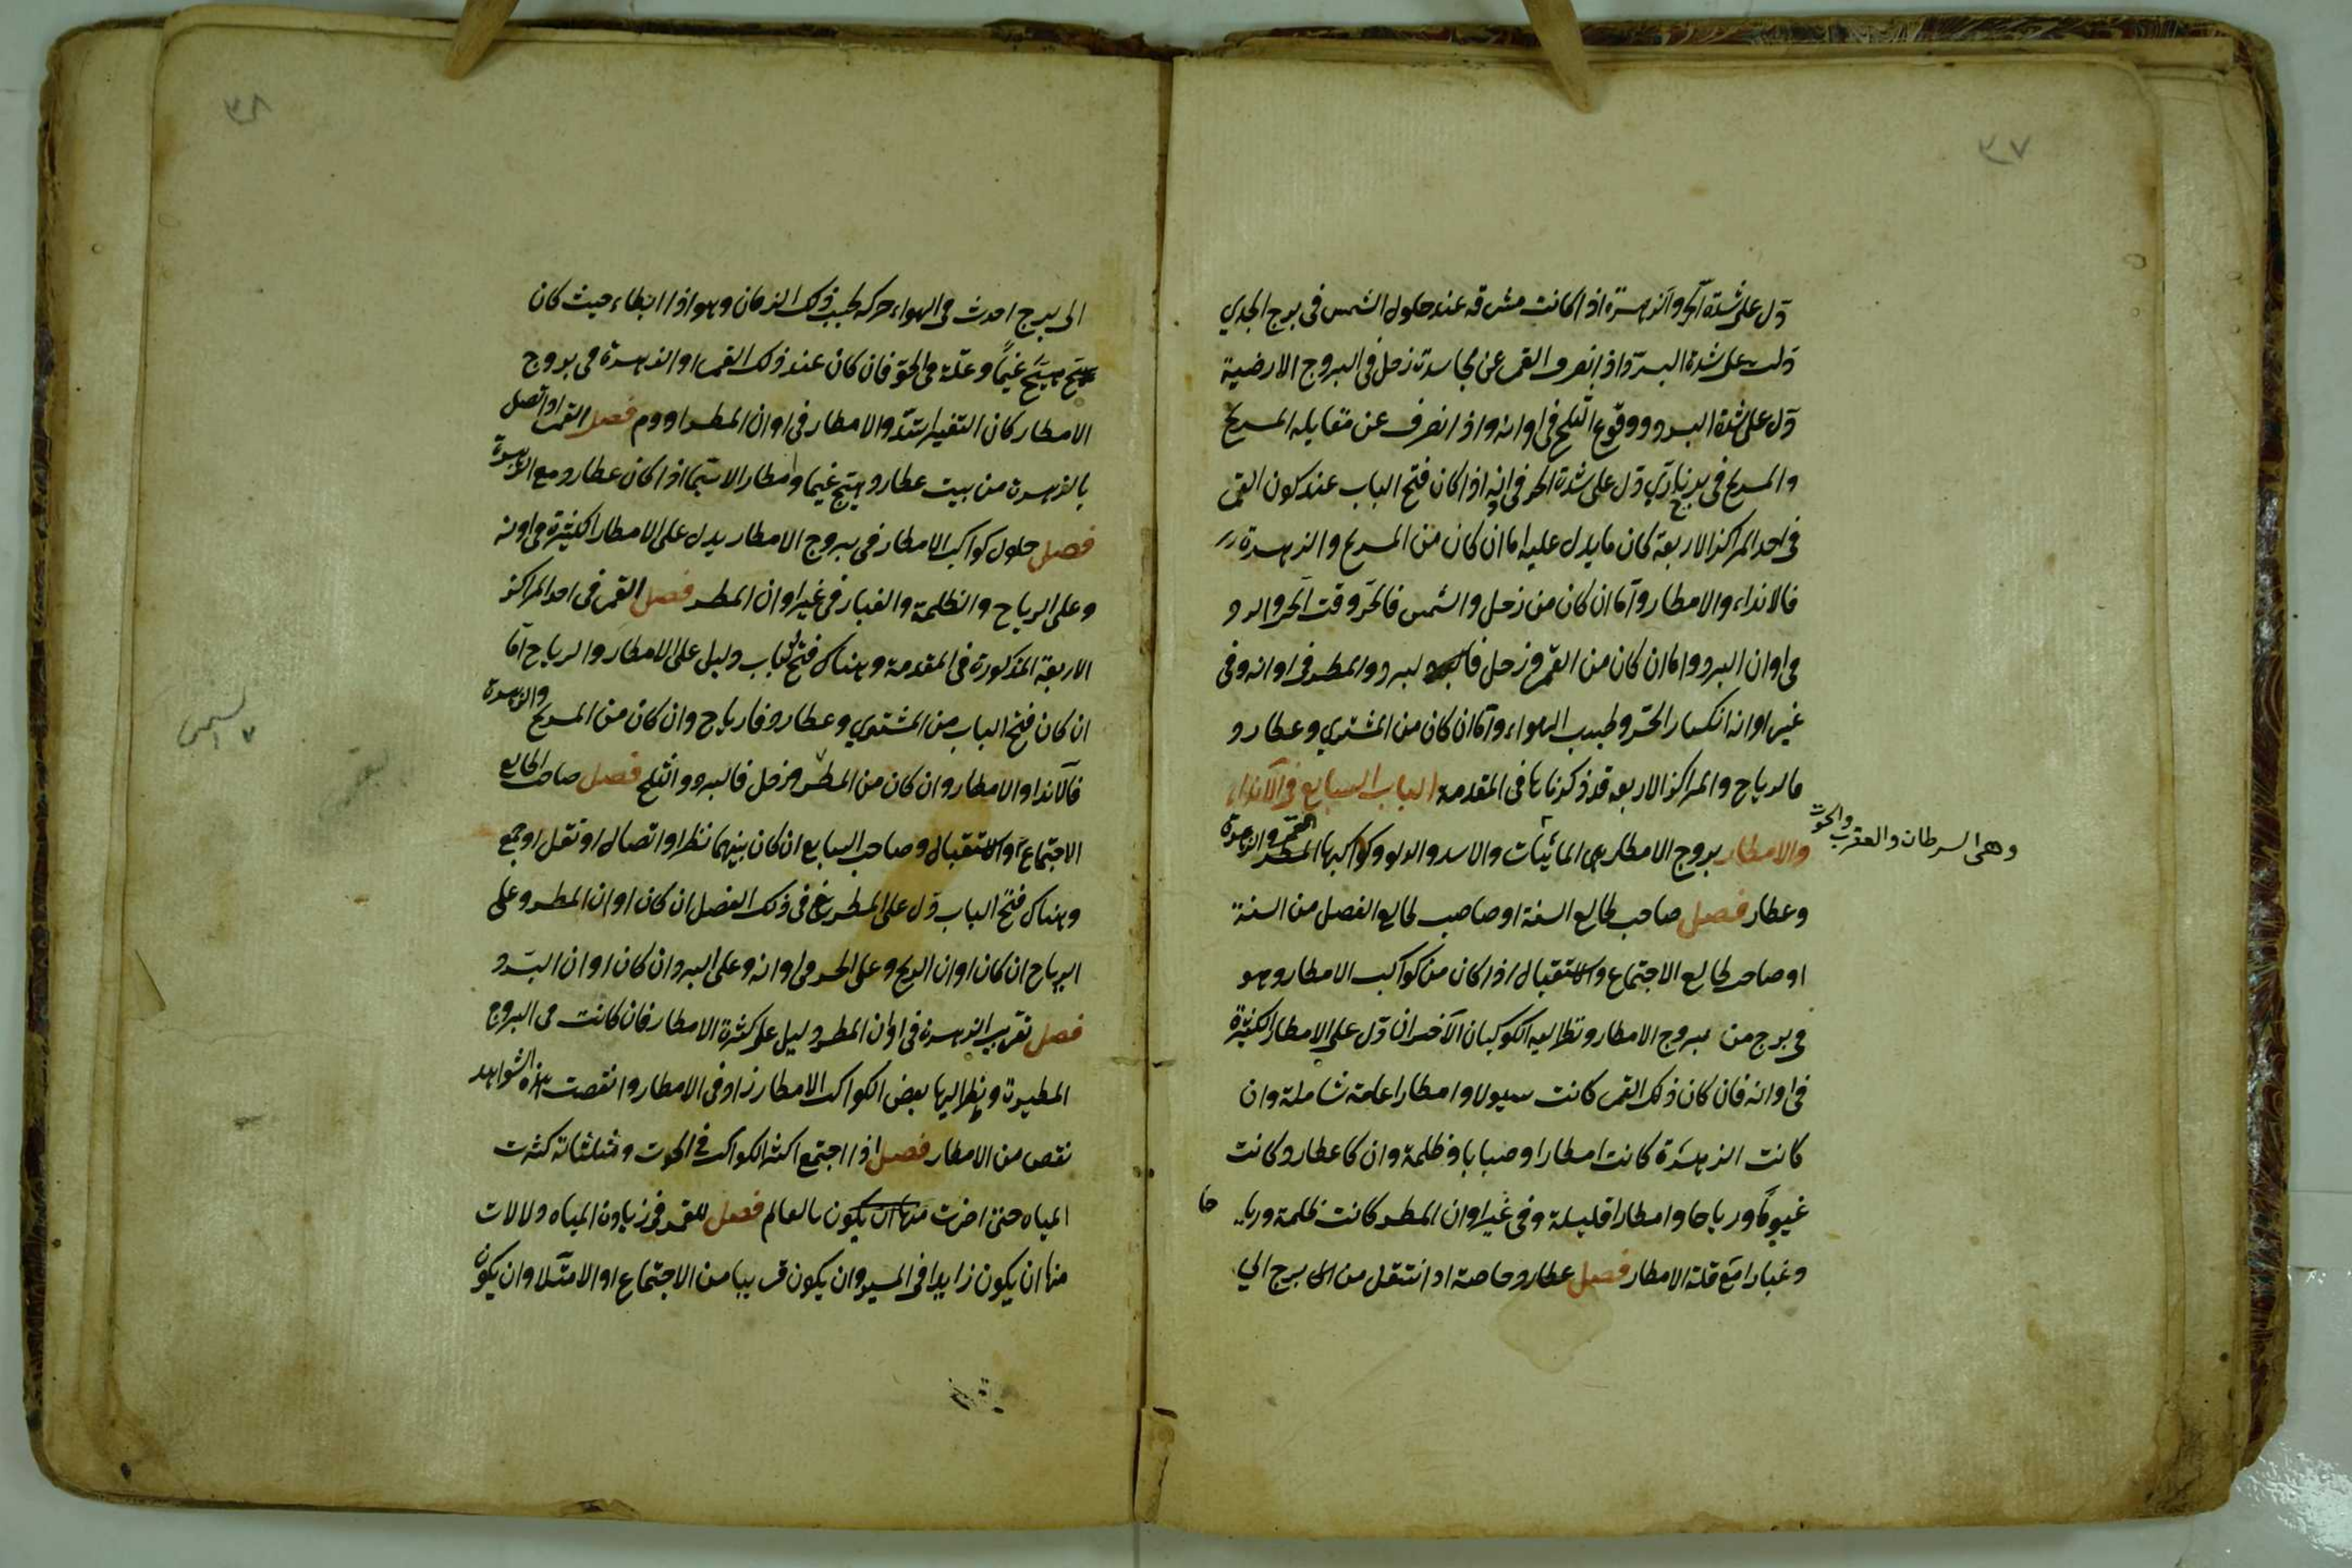 ٣٧
دل على شدة الحر والزهرة اذا كانت مشرقه عند حلول الشمس فى برج الجدي
دلت على شدة البرد واذا انصرف القمر عن مجاسدة زحل فى البروج الارضية
دل على شدة البرد ووقوع الثلج فى اوانه واذا انصرف عن مقابله المريخ
والمريخ فى برج نارى دل على شدة الحر فى اذا كان فتح الباب عند كون القمر
فى احد المراكز الاربعة كان ما يدل عليه اما ان كان من المريخ والزهرة
فالانداء والامطار واما ان كان من زحل والشمس فالحر وقت الحر والبرد
فى اوان البرد واما ان كان من القمر وزحل لبرد والمطر فى اوانه وفى
غير اوانه انكسار الحر وطيب الهواء واما ان كان من المشترى وعطارد
فالرياح والمراكز الاربعه قد ذكرناها فى المقدمة الباب السابع فى الانداء
والامطار بروج الامطار هى المائيات والاسد والدلو وكواكبها القمر والزهرة
وهى السرطان والعقرب والحوت
وعطار فصل صاحب طالع السنة او صاحب طالع الفصل من السنة
او صاحب طالع الاجتماع والاستقبال اذا كان من كواكب الامطار وهو
فى برج من بروج الامطار ونظر اليه الكوكبان الآخران دل على الامطار الكثيرة
فى اوانه فان كان ذلك القمر كانت سيولا وامطارا عامة شاملة وان
كانت الزهرة كانت امطارا وضبابا وظلمة وان كا عطارد كانت
غيوما ورياحا وامطارا قليلة وفى غير اوان المطر كانت ظلمة وريا حا
وغبارا مع قلة الامطار فصل عطارد خاصة اذ انتقل من الى برج الي
٣٨
الى برج احدث فى الهواء حركه بحسب ذلك الزمان وهو اذا ابطاء حيث كان
هيج غيما وعلة فى الجو فان كان عند ذلك القمر او الزهرة فى بروج
الامطار كان التغير اشد والامطار فى اوان المطر ادوم فصل القمر اذا اتصل
بالزهرة من بيت عطارد هيج غيما وامطار الاسيما اذا كان عطارد مع الزهرة
فصل حلول كواكب الامطار فى بروج الامطار يدل على الامطار الكثيرة فى اونه
وعلى الرياح والظلمة والغبار فى غير اوان المطر فصل القمر فى احد المراكز
الاربعة المذكورة فى المقدمة وهناك فتح الباب دليل على الامطار والرياح اما
ان كان فتح الباب من المشترى وعطارد فارياح وان كان من المريخ والزهرة
فالانداء والامطار وان كان من وزحل فالبرد والثلج فصل صاحب الطالع
الاجتماع او الاستقبال وصاحب السابع ان كان بينهما نظر او اتصال او نقل او جمع
وهناك فتح الباب دل على المطر فى ذلك الفصل ان كان اوان المطر وعلى
الرياح ان كان اوان الريح وعلى الحر فى اوانه وعلى البرد ان كان اوان البرد
فصل تغريب الزهرة فى اوان المطر دليل على كثرة الامطار فان كانت فى البروج
المطيرة ونظر اليها بعض الكواكب الامطار زاد فى الامطار وانقصت هذه الشواهد
نقص من الامطار فصل اذا اجتمع اكثر الكواكب فى الحوت ومثلثاته كثرت
المياه حتى اضرت بالعالم فصل للقمر فى زيادة المياه دلالات
منها ان يكون زايدا فى المسير وان يكون قريبا من الاجتماع او الامتلا وان يكون